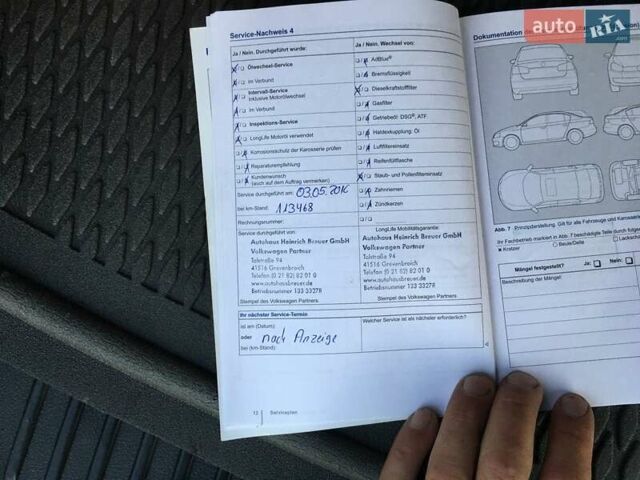 auto RIA.com
Service-Nachweis 4
Ja / Nein. Durchgeführt wurde:
Ölwechsel-Service
im Verbund
Intervall-Service
inklusive Motorölwechsel
im Verbund
Inspektions-Service
LongLife Motoröl verwendet
Korrosionsschutz der Karosserie prüfen
Reparaturempfehlung
Kundenwunsch
(auch auf dem Auftrag vermerken)
Service durchgeführt am: 03.05.2016
bei km-Stand: 113468
Rechnungsnummer:
Service durchgeführt von:
Autohaus Heinrich Breuer GmbH
Volkswagen Partner
Talstraße 94
41516 Grevenbroich
Telefon (0 21 82) 82 01 0
www.autohausbreuer.de
Betriebsnummer 133 33278
Stempel des Volkswagen Partners.
Ja / Nein. Wechsel von:
AdBlue®
Bremsflüssigkeit
Dieselkraftstofffilter
Gasfilter
Getriebeöl: DSG®, ATF
Haldexkupplung: Öl
Luftfiltereinsatz
Reifenfüllflasche
Staub- und Pollenfiltereinsatz
Zahnriemen
Zündkerzen
LongLife Mobilitätsgarantie:
Autohaus Heinrich Breuer GmbH
Volkswagen Partner
Talstraße 94
41516 Grevenbroich
Telefon (0 21 82) 82 01 0
www.autohausbreuer.de
Betriebsnummer 133 33278
Stempel des Volkswagen Partners.
Ihr nächster Service-Termin
ist am (Datum):
oder nach Anzeige
bei (km-Stand):
Welcher Service ist als nächster erforderlich?
12 Serviceplan
Dokumentation
Abb. 7 Prinzipdarstellung: Gilt für alle Fahrzeuge und
Ihr Fachbetrieb markiert in Abb. 7 beschädigte Teile durch
Kratzer
Beule/Delle
Mängel festgestellt?
Ja:
Nein:
Beschreibung der Mängel: